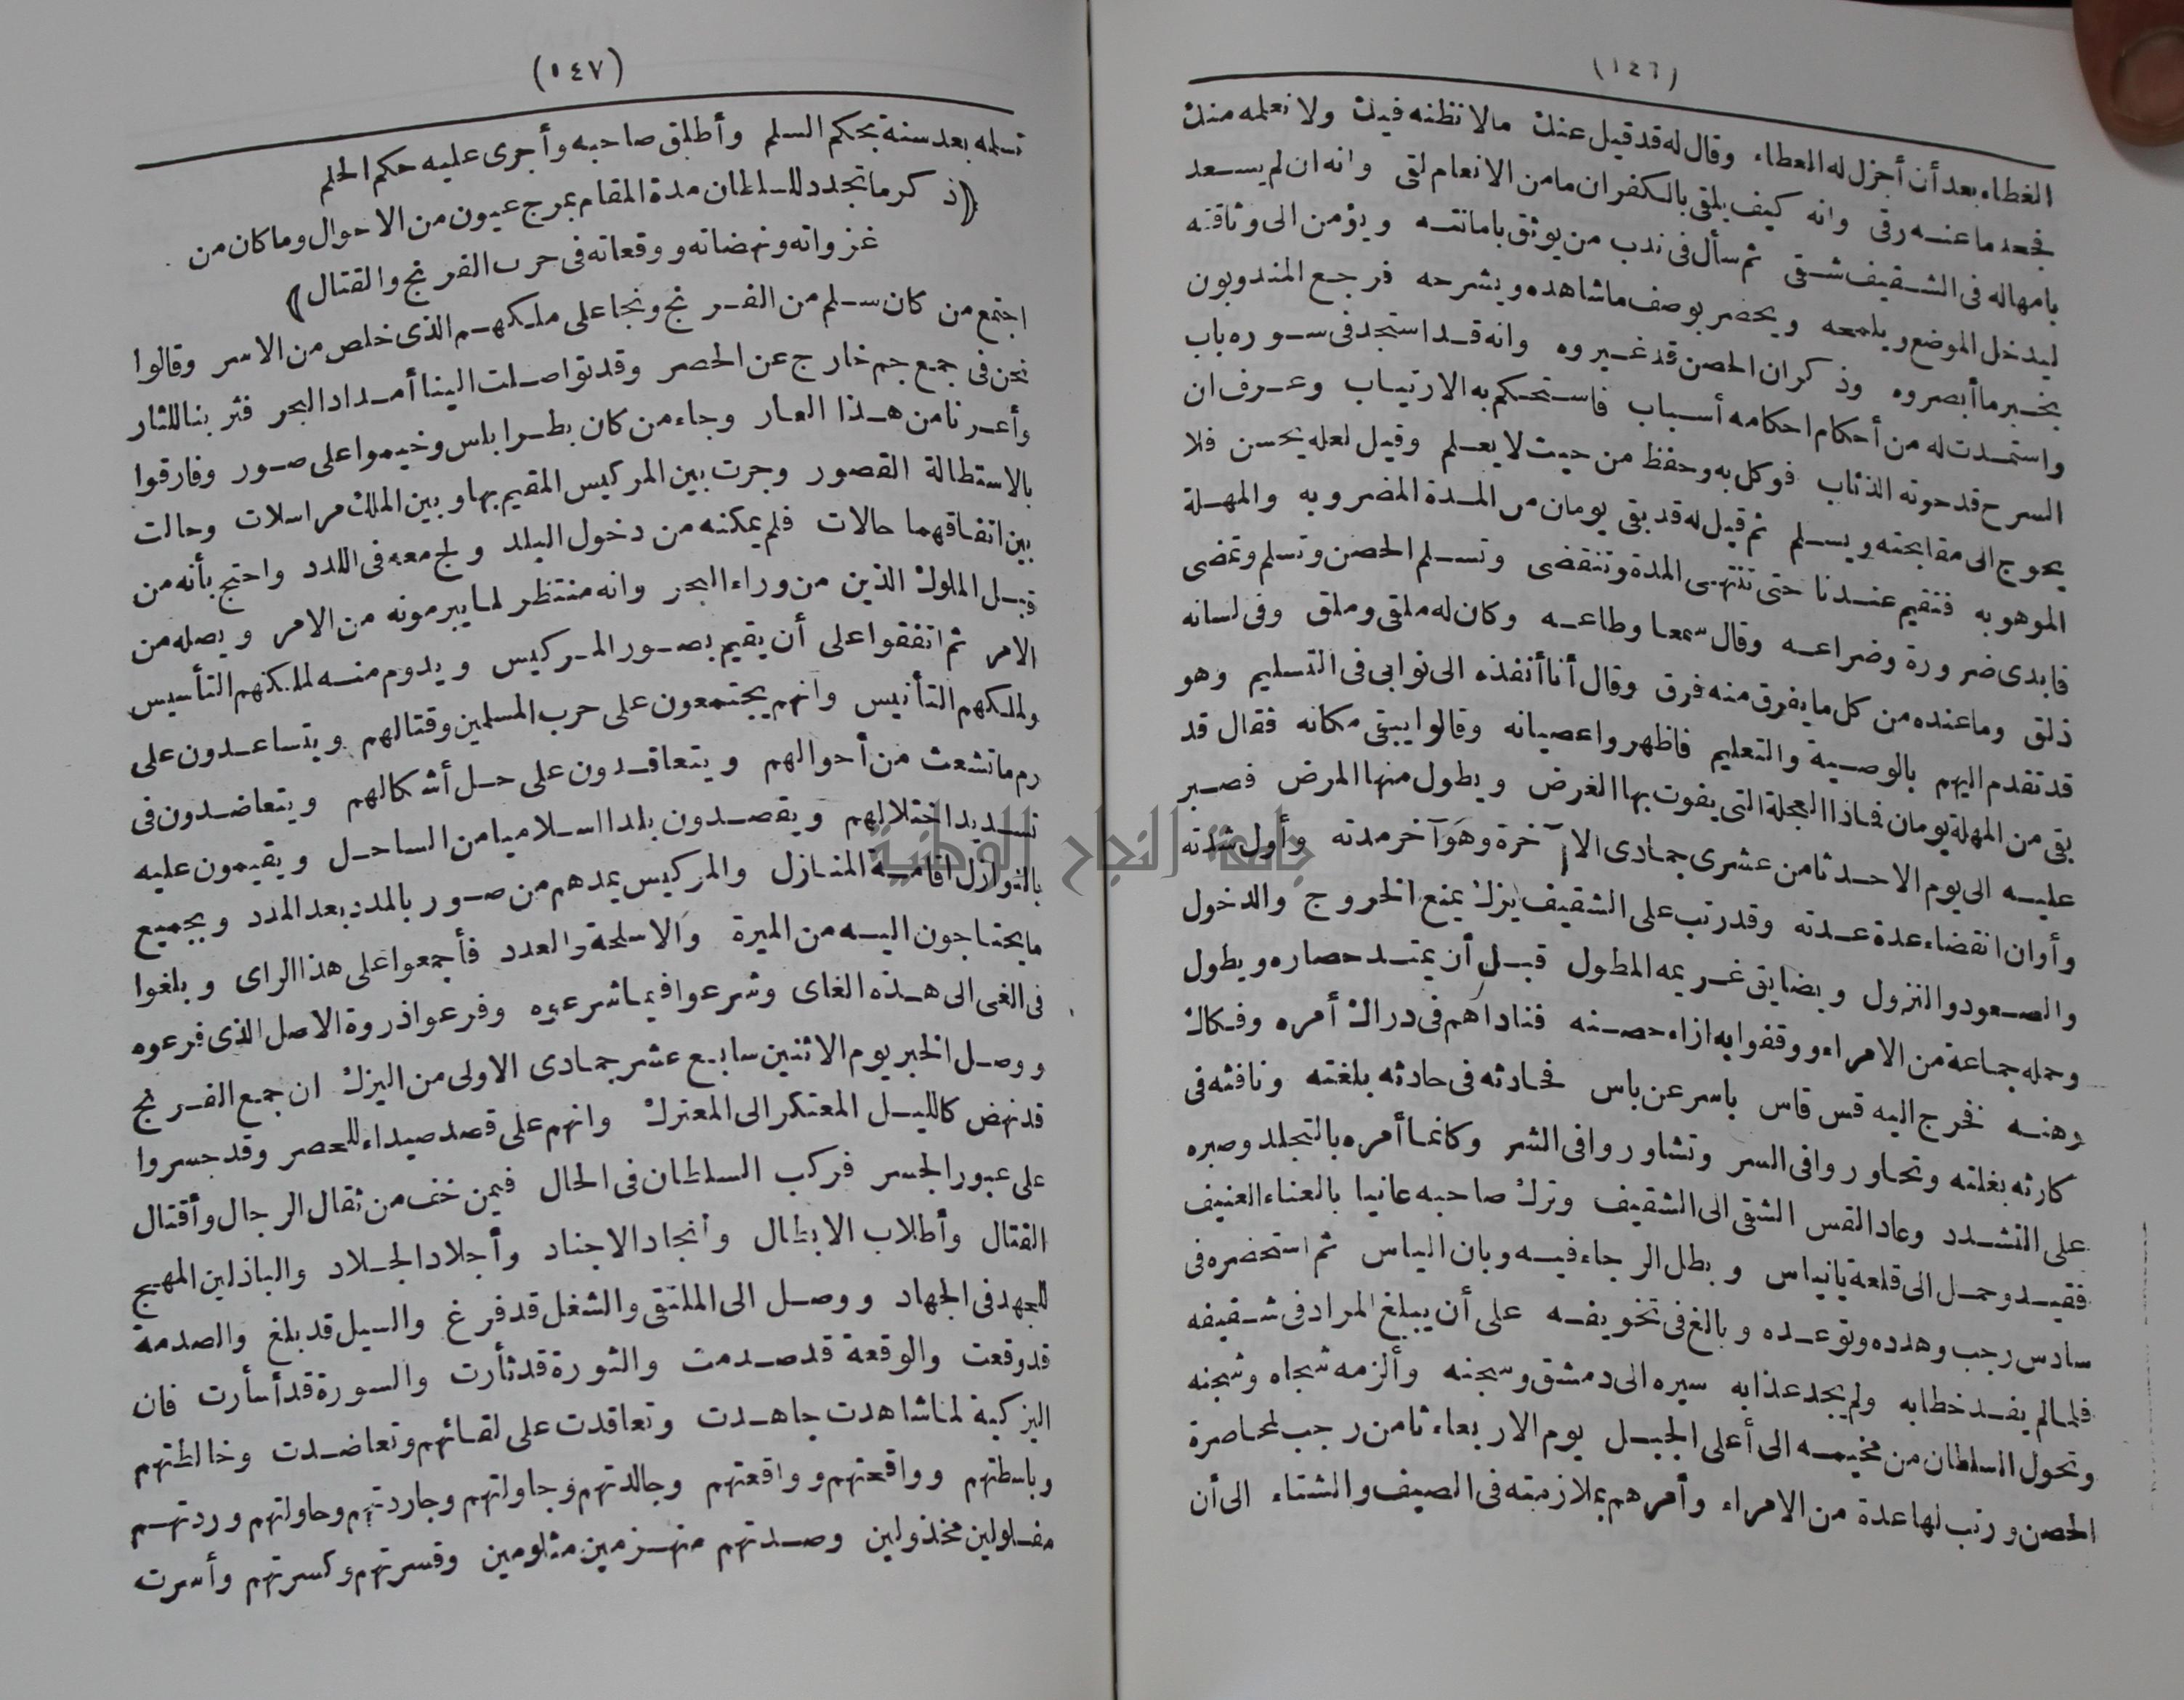 (١٤٦)
الغطاء بعد أن أجزل له العطاء وقال له قد قيل عنك مالا نظنه فيك ولا نعلمه منك
فجحد ما عنه رقى وانه كيف يلقى بالكفران ما من الانعام لقى وانه ان لم يسعد
بامهاله فى الشقيف شقى ثم سأل فى ندب من يوثق بامانته ويؤمن الى وثاقته
ليدخل الموضع ويلمحه ويحضر بوصف ما شاهده ويشرحه فرجع المندوبون
بخبر ما أبصروه وذكر ان الحصن قد غيروه وانه قد استجد فى سوره باب
واستمدت له من أحكام احكامه أسباب فاستحكم به الارتياب وعرف ان
السرح قد حوته الذئاب فوكل به وحفظ من حيث لا يعلم وقيل لعله يحسن فلا
يحوج الى مقابحته ويسلم ثم قيل له قد بقى يومان من المدة المضروبه والمهلة
الموهوبه فتقيم عندنا حتى تنتهى المدة وتنقضى وتسلم الحصن وتسلم وتمضى
فابدى ضرورة وضراعه وقال سمعا وطاعه وكان له ملقى وملق وفى لسانه
ذلق وما عنده من كل ما يفرق منه فرق وقال أنا أنفذه الى نوابى فى التسليم وهو
قد تقدم اليهم بالوصية والتعليم فاظهروا عصيانه وقالوا يبقى مكانه فقال قد
بقى من المهلة يومان فماذا العجلة التى يفوت بها الغرض ويطول منها المرض فصبر
عليه الى يوم الاحد ثامن عشرى جمادى الآخرة وهو آخر مدته وأول شدته
وأوان انقضاء عدة عدته وقد رتب على الشقيف يزك يمنع الخروج والدخول
والصعود والنزول ويضايق غريمه المطول قبل أن يمتد حصاره ويطول
وحمله جماعة من الامراء ووقفوا به ازاء حصنه فناداهم فى دراك أمره وفكاك
رهنه فخرج اليه قس قاس باسر عن باس فحادثه فى حادثه بلغته ونافثه فى
كارثه بغلته وتحاوروا فى السر وتشاوروا فى الشر وكانما أمره بالتجلد وصبره
على التشدد وعاد القس الشقى الى الشقيف وترك صاحبه عانيا بالعناء العنيف
فقيد وحمل الى قلعة بانياس وبطل الرجاء فيه وبان الياس ثم استحضره فى
سادس رجب وهدده وتوعده وبالغ فى تخويفه على أن يبلغ المراد فى شقيفه
فلما لم يفد خطابه ولم يجد عذابه سيره الى دمشق وسجنه وألزمه شجاه وشجنه
وتحول السلطان من مخيمه الى أعلى الجبل يوم الاربعاء ثامن رجب لمحاصرة
الحصن ورتب لها عدة من الامراء وأمرهم بملازمته فى الصيف والشتاء الى أن
(١٤٧)
تسلمه بعد سنة بحكم السلم وأطلق صاحبه وأجرى عليه حكم الحلم
(ذكر ما تجدد للسلطان مدة المقام بمرج عيون من الاحوال وما كان من
غزواته ونهضاته ووقعاته فى حرب الفرنج والقتال)
اجتمع من كان سلم من الفرنج ونجا على ملكهم الذى خلص من الاسر وقالوا
نحن فى جمع جم خارج عن الحصر وقد تواصلت الينا أمداد البحر فثر بنا للثار
وأعرنا من هذا العار وجاء من كان بطرابلس وخيموا على صور وفارقوا
بالاستطالة القصور وجرت بين المركيس المقيم بها وبين الملك مراسلات وحالت
بين اتفاقهما حالات فلم يمكنه من دخول البلد ولج معه فى اللدد واحتج بأنه من
قبل الملوك الذين من وراء البحر وانه منتظر لما يبرمونه من الامر ويصله من
الامر ثم اتفقوا على أن يقيم بصور المركيس ويدوم منه لملكهم التأسيس
ولملكهم التأنيس وانهم يجتمعون على حرب المسلمين وقتالهم ويتساعدون على
رم ما تشعث من أحوالهم ويتعاقدون على حل أشكالهم ويتعاضدون فى
تسديد اختلالهم ويقصدون بلدا اسلاميا من الساحل ويقيمون عليه
بالنوازل اقامة المنازل والمركيس يمدهم من صور بالمدد بعد المدد وبجميع
ما يحتاجون اليه من الميرة والاسلحة والعدد فأجمعوا على هذا الراى وبلغوا
فى الغى الى هذه الغاى وشرعوا فيما شرعوه وفرعوا ذروة الاصل الذى فرعوه
ووصل الخبر يوم الاثنين سابع عشر جمادى الاولى من اليزك ان جمع الفرنج
قد نهض كالليل المعتكر الى المعترك وانهم على قصد صيداء للحصر وقد جسروا
على عبور الجسر فركب السلطان فى الحال فيمن خف من ثقال الرجال وأقتال
القتال وأطلاب الابطال وأنجاد الاجناد وأجلاد الجلاد والباذلين المهج
للجهد فى الجهاد ووصل الى الملتقى والشغل قد فرغ والسيل قد بلغ والصدمة
قد وقعت والوقعة قد صدمت والثورة قد ثأرت والسورة قد أسأرت فان
اليزكية لما شاهدت جاهدت وتعاقدت على لقائهم وتعاضدت وخالطتهم
وباسطتهم وواقحتهم وواقعتهم وجالدتهم وجاولتهم وجاردتهم وحاولتهم وردتهم
مفلولين مخذولين وصدتهم منهزمين مثلومين وقسرتهم وكسرتهم وأسرت
جامعة النجاح الوطنية